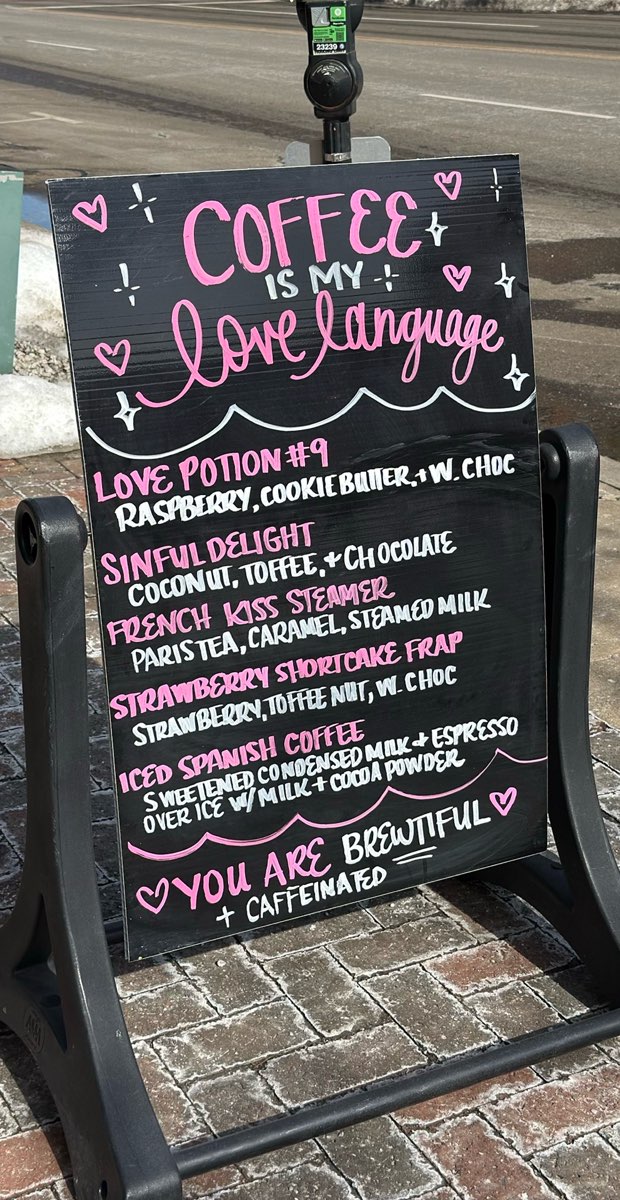 23239
COFFEE
IS MY
love language
LOVE POTION #9
RASPBERRY, COOKIE BUTTER, + W. CHOC
SINFUL DELIGHT
COCONUT, TOFFEE, + CHOCOLATE
FRENCH KISS STEAMER
PARIS TEA, CARAMEL, STEAMED MILK
STRAWBERRY SHORTCAKE FRAP
STRAWBERRY, TOFFEE NUT, W. CHOC
ICED SPANISH COFFEE
SWEETENED CONDENSED MILK + ESPRESSO
OVER ICE W/ MILK + COCOA POWDER
YOU ARE BREWTIFUL
+ CAFFEINATED